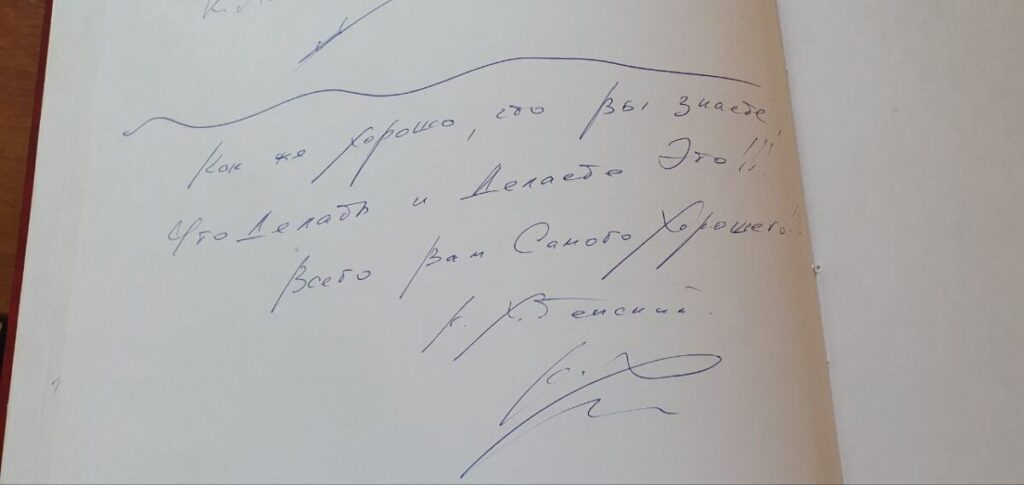 Как же Хорошо, что Вы знаете,
Что Делать и Делаете Это!!!
Всего Вам Самого Хорошего!!!
К. Хабенский.